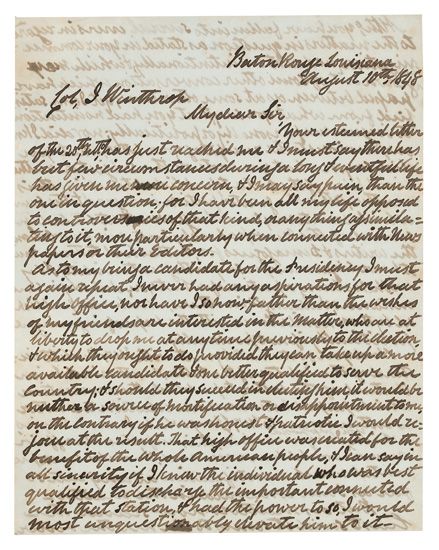 Baton Rouge Louisiana
August 10th, 1848
Col, J Winthrop
My dear Sir
Your esteemed letter
of the 20th, Ulto, has just reached me & I must say there has
but few circumstances during a long & eventful life
has given me more concern, & I may say pain, than the
one in question; for I have been all my life opposed
to controversies of that kind, or anything assimila-
ting to it, more particularly when connected with News
papers or their Editors.
As to my being a candidate for the Presidency I must
again repeat I never had any aspirations for that
high office, nor have I so now farther than the wishes
of my friends are interested in the Matter, who are at
liberty to drop me at any time previously to the election,
& which they ought to do, provided they can take up a more
available candidate & one better qualified to serve the
Country; & should they succeed in electing him, it would be
neither a source of mortification or disappointment to me
on the contrary if he was honest & patriotic I would re-
joice at the result. That high office was created for the
benefit of the Whole American people, & I can say in
all sincerity if I knew the individual who was best
qualified to discharge the important connected
with that station & had the power to so, I would
most unquestionably elevate him to it—